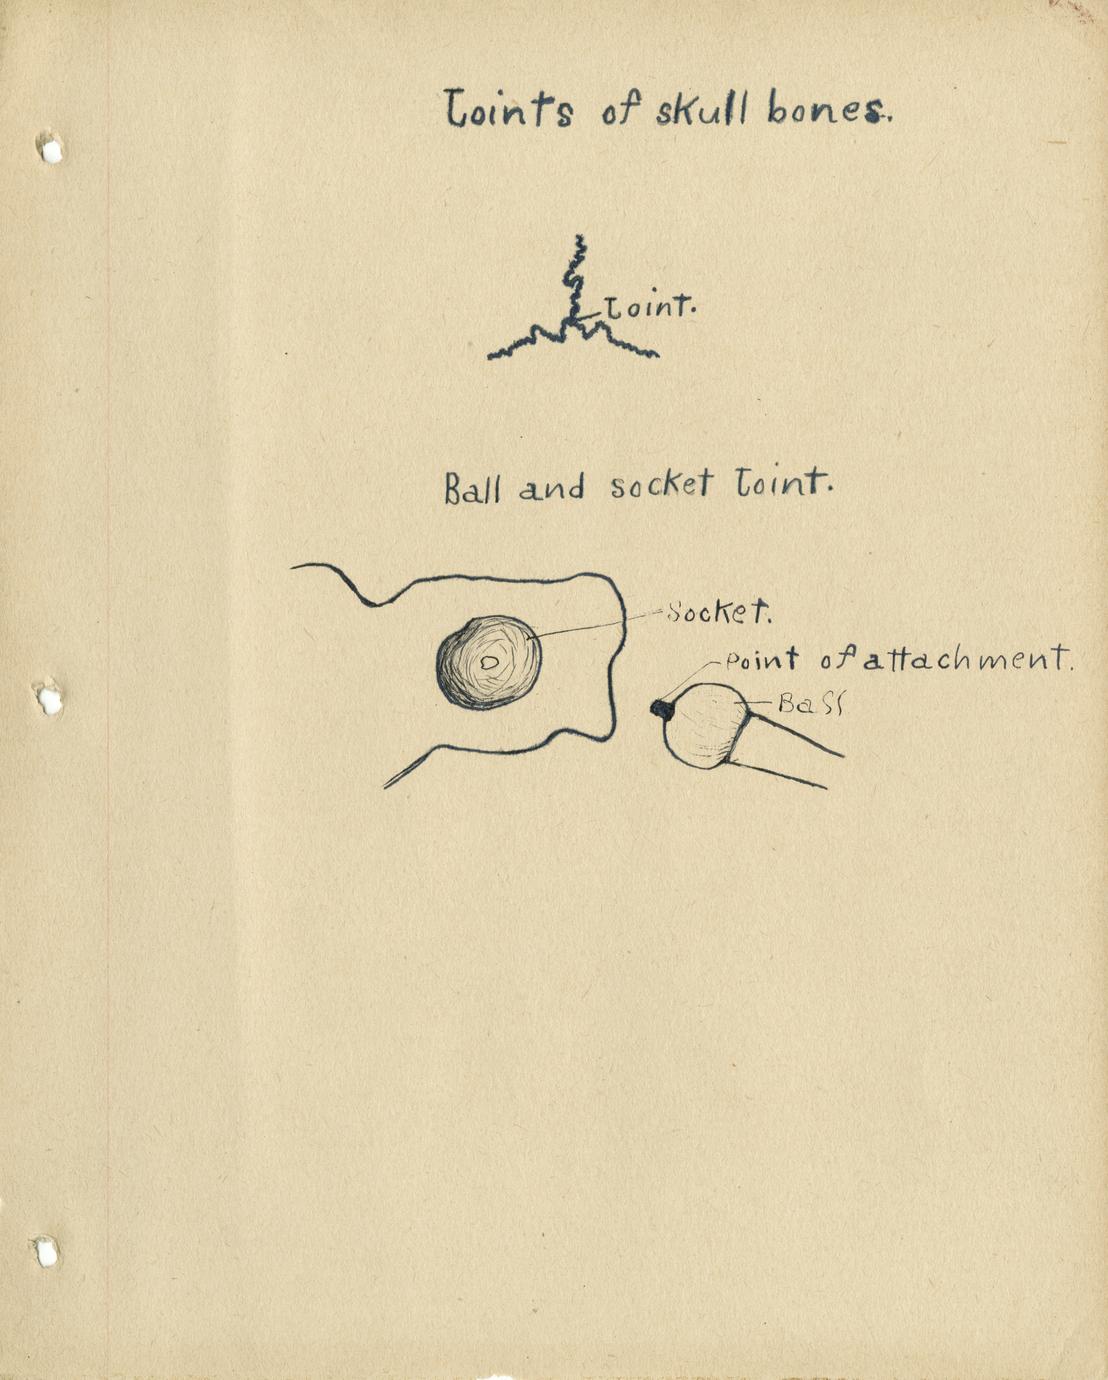 Joints of skull bones.
Joint.
Ball and socket Joint.
Socket.
Point of attachment.
Ball